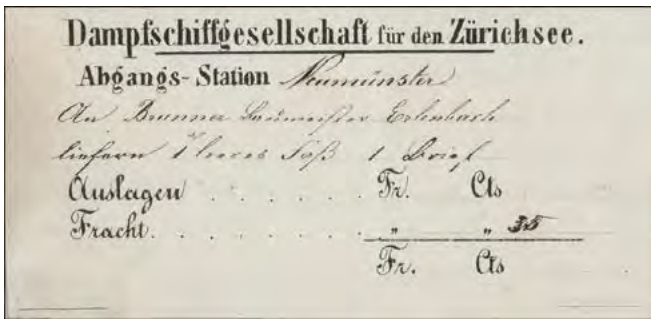 Dampfschiffgesellschaft für den Zürichsee.
Abgangs-Station Neumünster
An Brunner Baumeister Erlenbach
liefern 1 leeres Faß 1 Brief
Auslagen . . . . . . Fr. Cts
Fracht. . . . . . . . " " 35
Fr. Cts